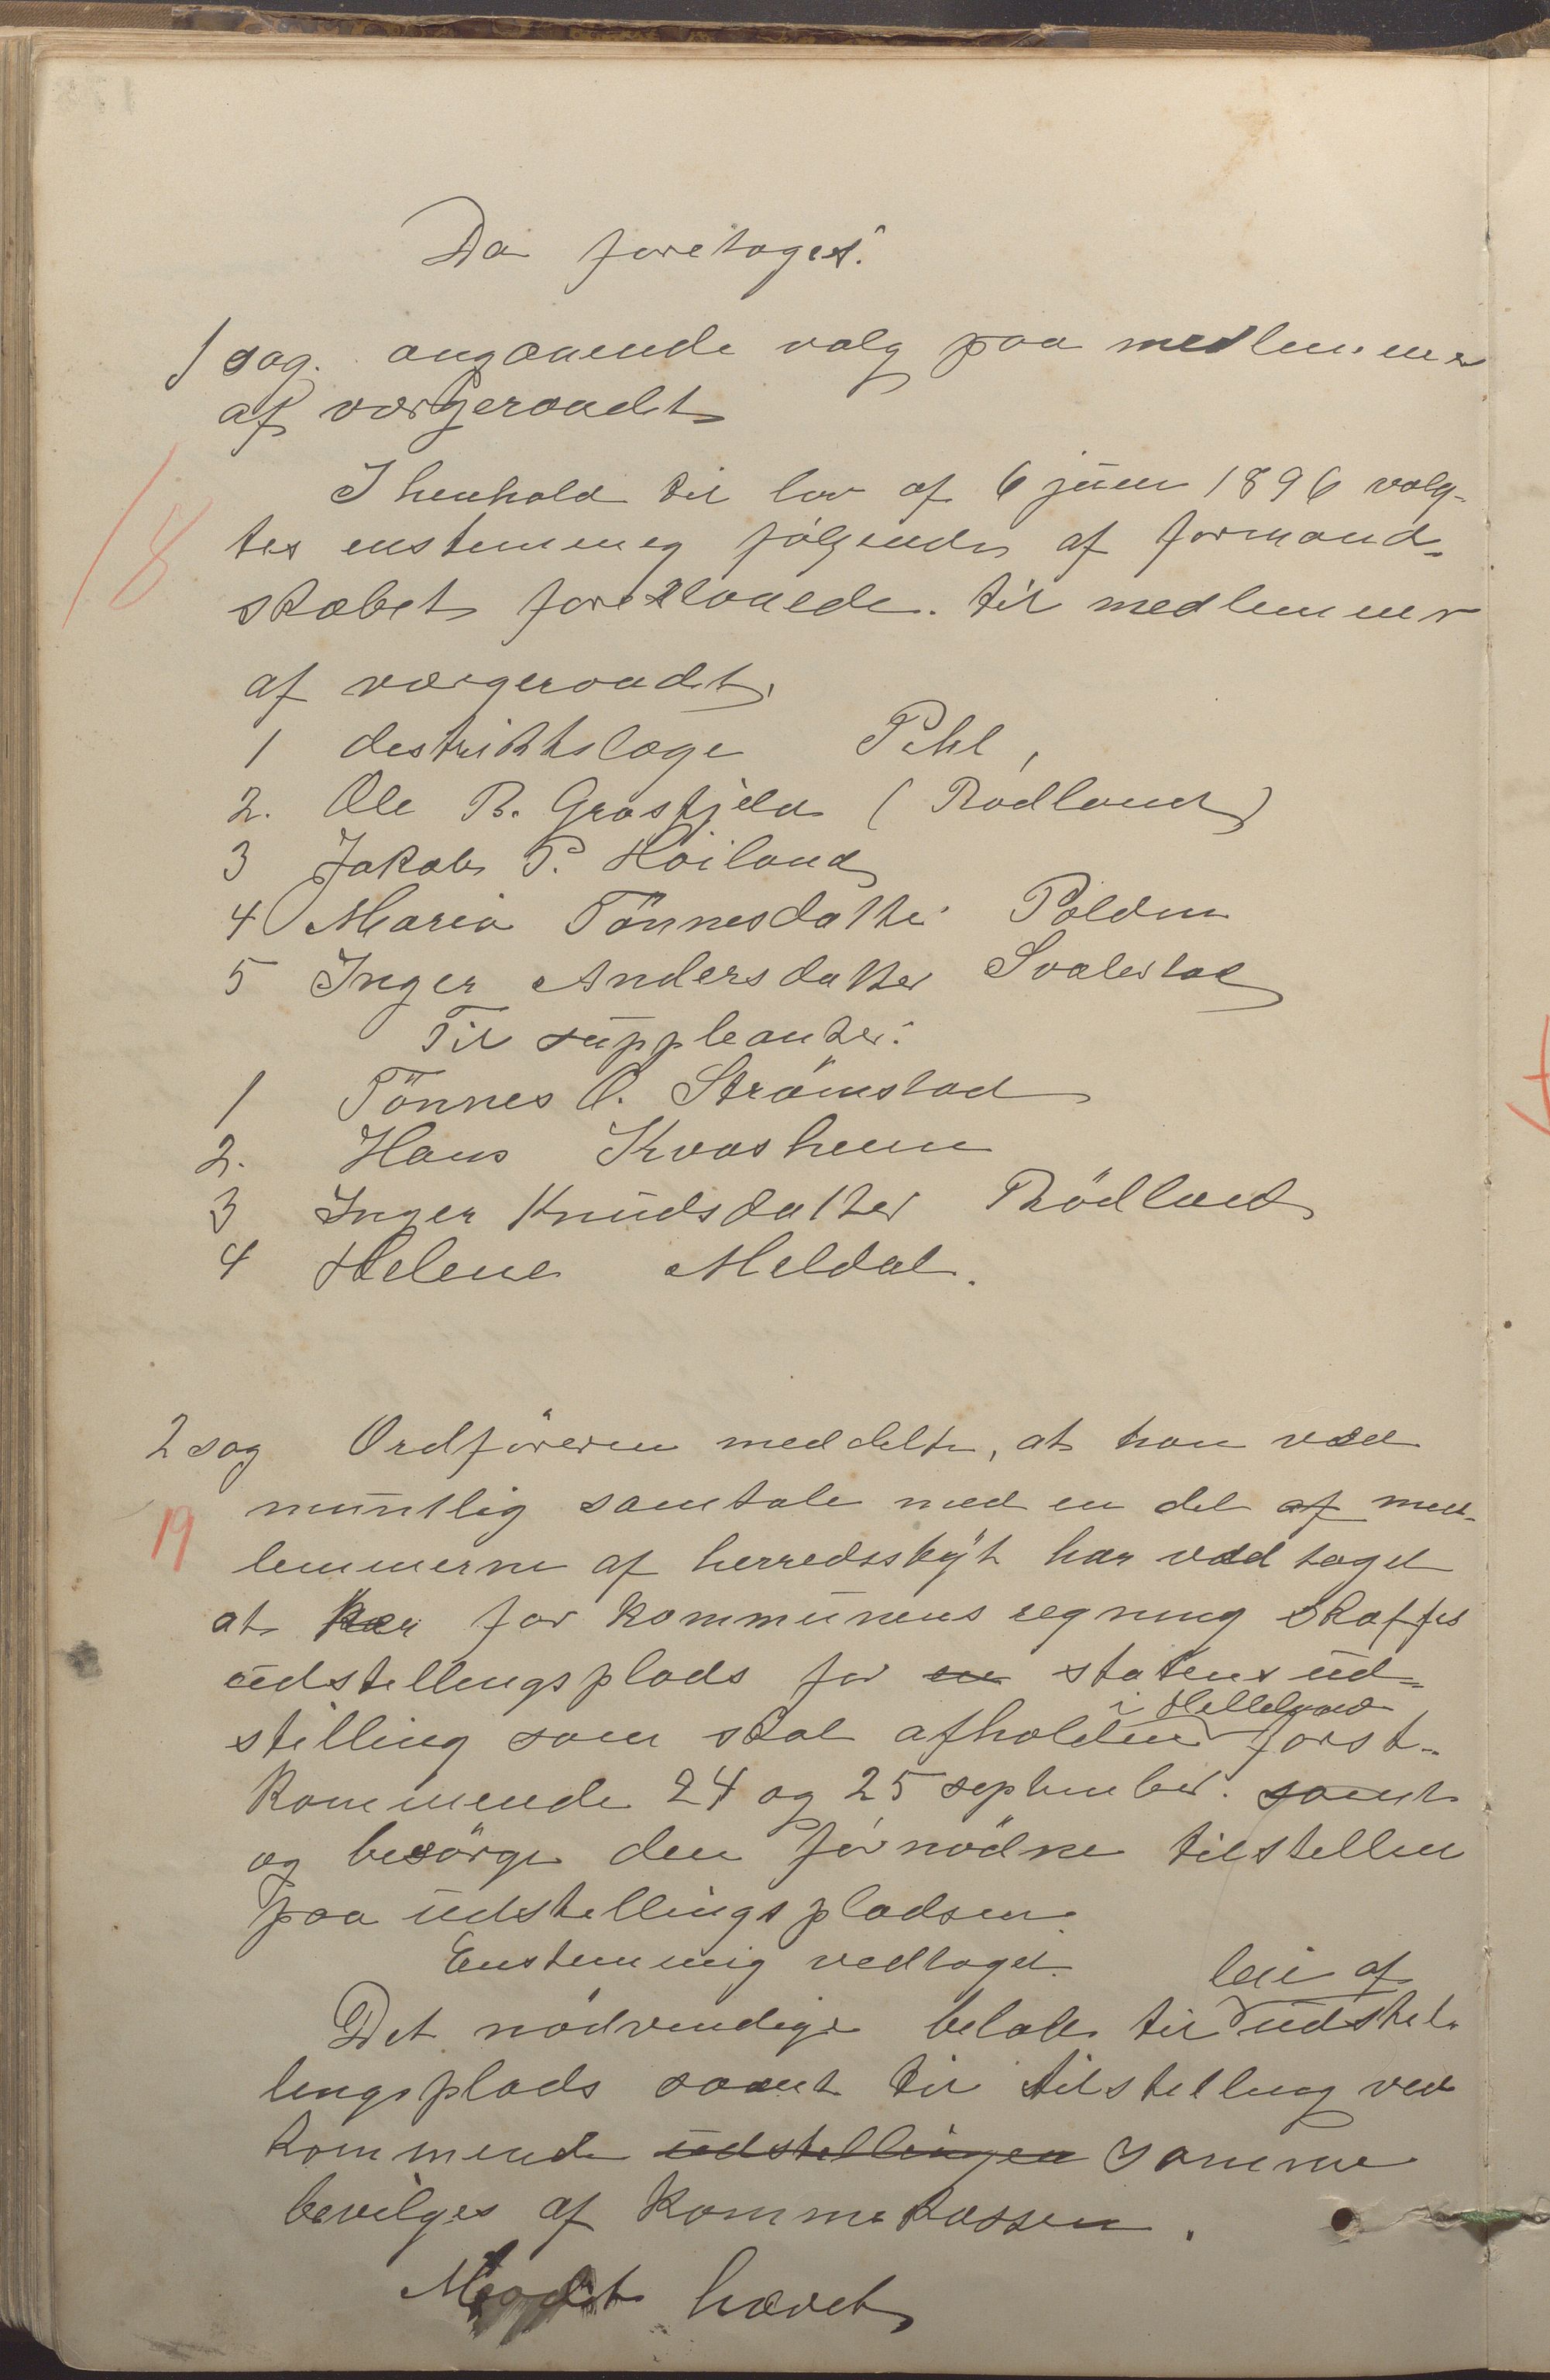 Da foretoges:
1 sag. angaaende valg paa medlemmer
af værgeraadet
18
I henhold til lov af 6 juni 1896 valg-
tes enstemmig følgende af formand-
skabet foreslaaede til medlemmer
af værgeraadet,
1 destriktslæge Pihl,
2. Ole B. Grasfjeld (Rødland)
3 Jakob P. Høiland
4 Maria Tönnesdatter Polden
5 Inger Andersdatter Svalestad
Til suppleanter:
1 Tönnes O. Strömstad
2. Hans Kvasheim
3 Inger Knudsdatter Rödland
4 Helene Meldal.
2 sag Ordföreren meddelte, at han ved
19
muntlig samtale med en del af med-
lemmerne af herredsstyt har vedtaget
at her for kommunens regning skaffes
udstellingsplads for en statens ud-
i Helleland
stilling som skal afholdes først-
kommende 24 og 25 september. samt
og besörge den fornödne tilstellen
paa udstellingspladsen.
Enstemmig vedtaget.
leie af
Det nödvendige beløb til udstel-
lingsplads samt til tilstelling ved
kommende udstellingen samme
bevilges af kommekassen.
Mødet hævet